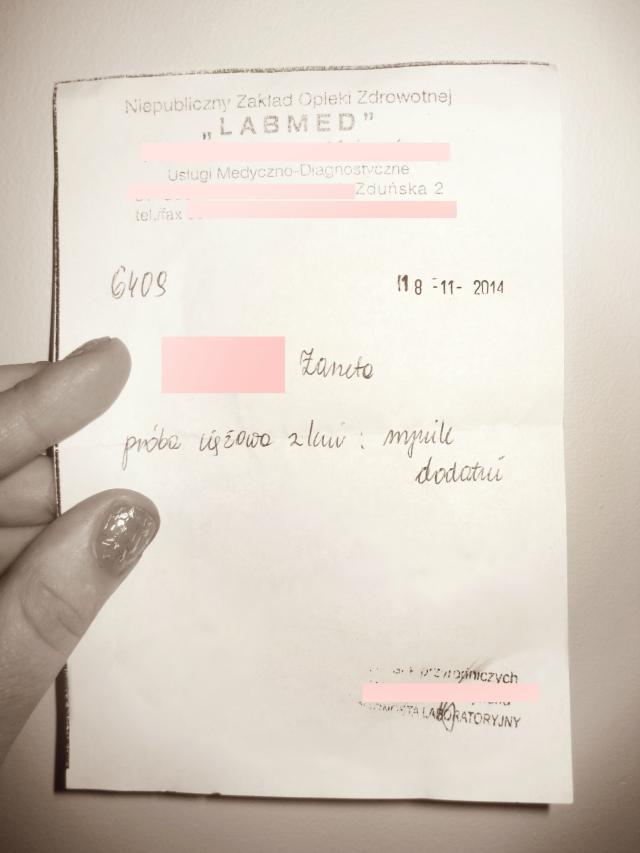 Niepubliczny Zakład Opieki Zdrowotnej
„LABMED”
Usługi Medyczno-Diagnostyczne
Zduńska 2
tel./fax
6409
18 -11- 2014
Żaneta
próba ciążowa z krwi : wynik
dodatni
przyrodniczych
LABORATORYJNY